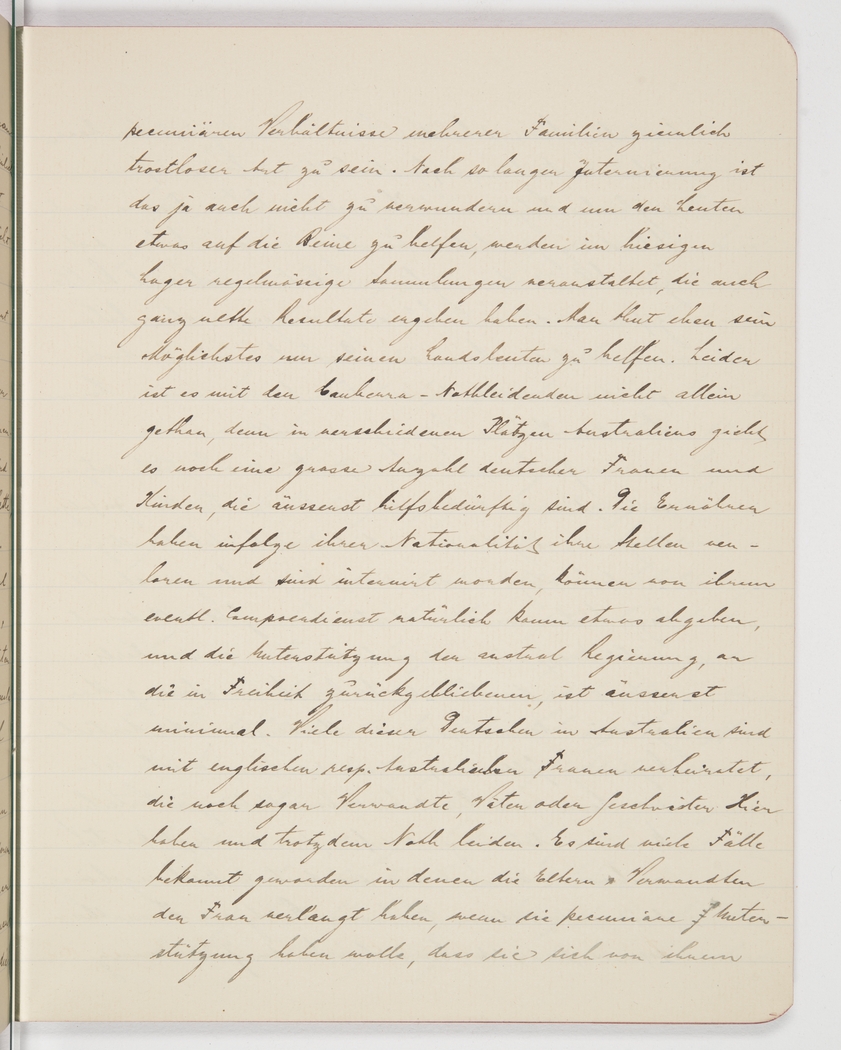 pecuniären Verhältnisse mehrerer Familien ziemlich
trostloser Art zu sein. Nach so langer Internierung ist
das ja auch nicht zu verwundern und um den Leuten
etwas auf die Beine zu helfen, werden im hiesigen
Lager regelmässige Sammlungen veranstaltet, die auch
ganz nette Resultate ergeben haben. Man thut eben sein
Möglichstes um seinen Landsleuten zu helfen. Leider
ist es mit den Canberra-Nothleidenden nicht allein
gethan, denn in verschiedenen Plätzen Australiens giebt
es noch eine grosse Anzahl deutscher Frauen und
Kinder, die äusserst hilfsbedürftig sind. Die Ernährer
haben infolge ihrer Nationalität ihre Stellen ver-
loren und sind internirt worden, können von ihrem
eventl. Campverdienst natürlich kaum etwas abgeben,
und die Unterstützung der austral Regierung, an
die in Freiheit zurückgebliebenen, ist äusserst
minimal. Viele dieser Deutschen in Australien sind
mit englischen resp. Australischen Frauen verheiratet,
die noch sogar Verwandte, Väter oder Geschwister Hier
haben und trotzdem Noth leiden. Es sind viele Fälle
bekannt geworden in denen die Eltern Verwandten
der Frau verlangt haben, wenn sie pecuniäre Unter-
stützung haben wolle, dass sie sich von ihrem